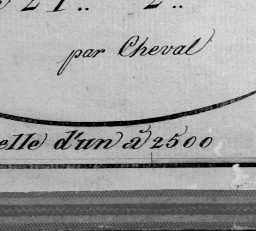 21.. 2..
par Cheval
elle d'un à 2500